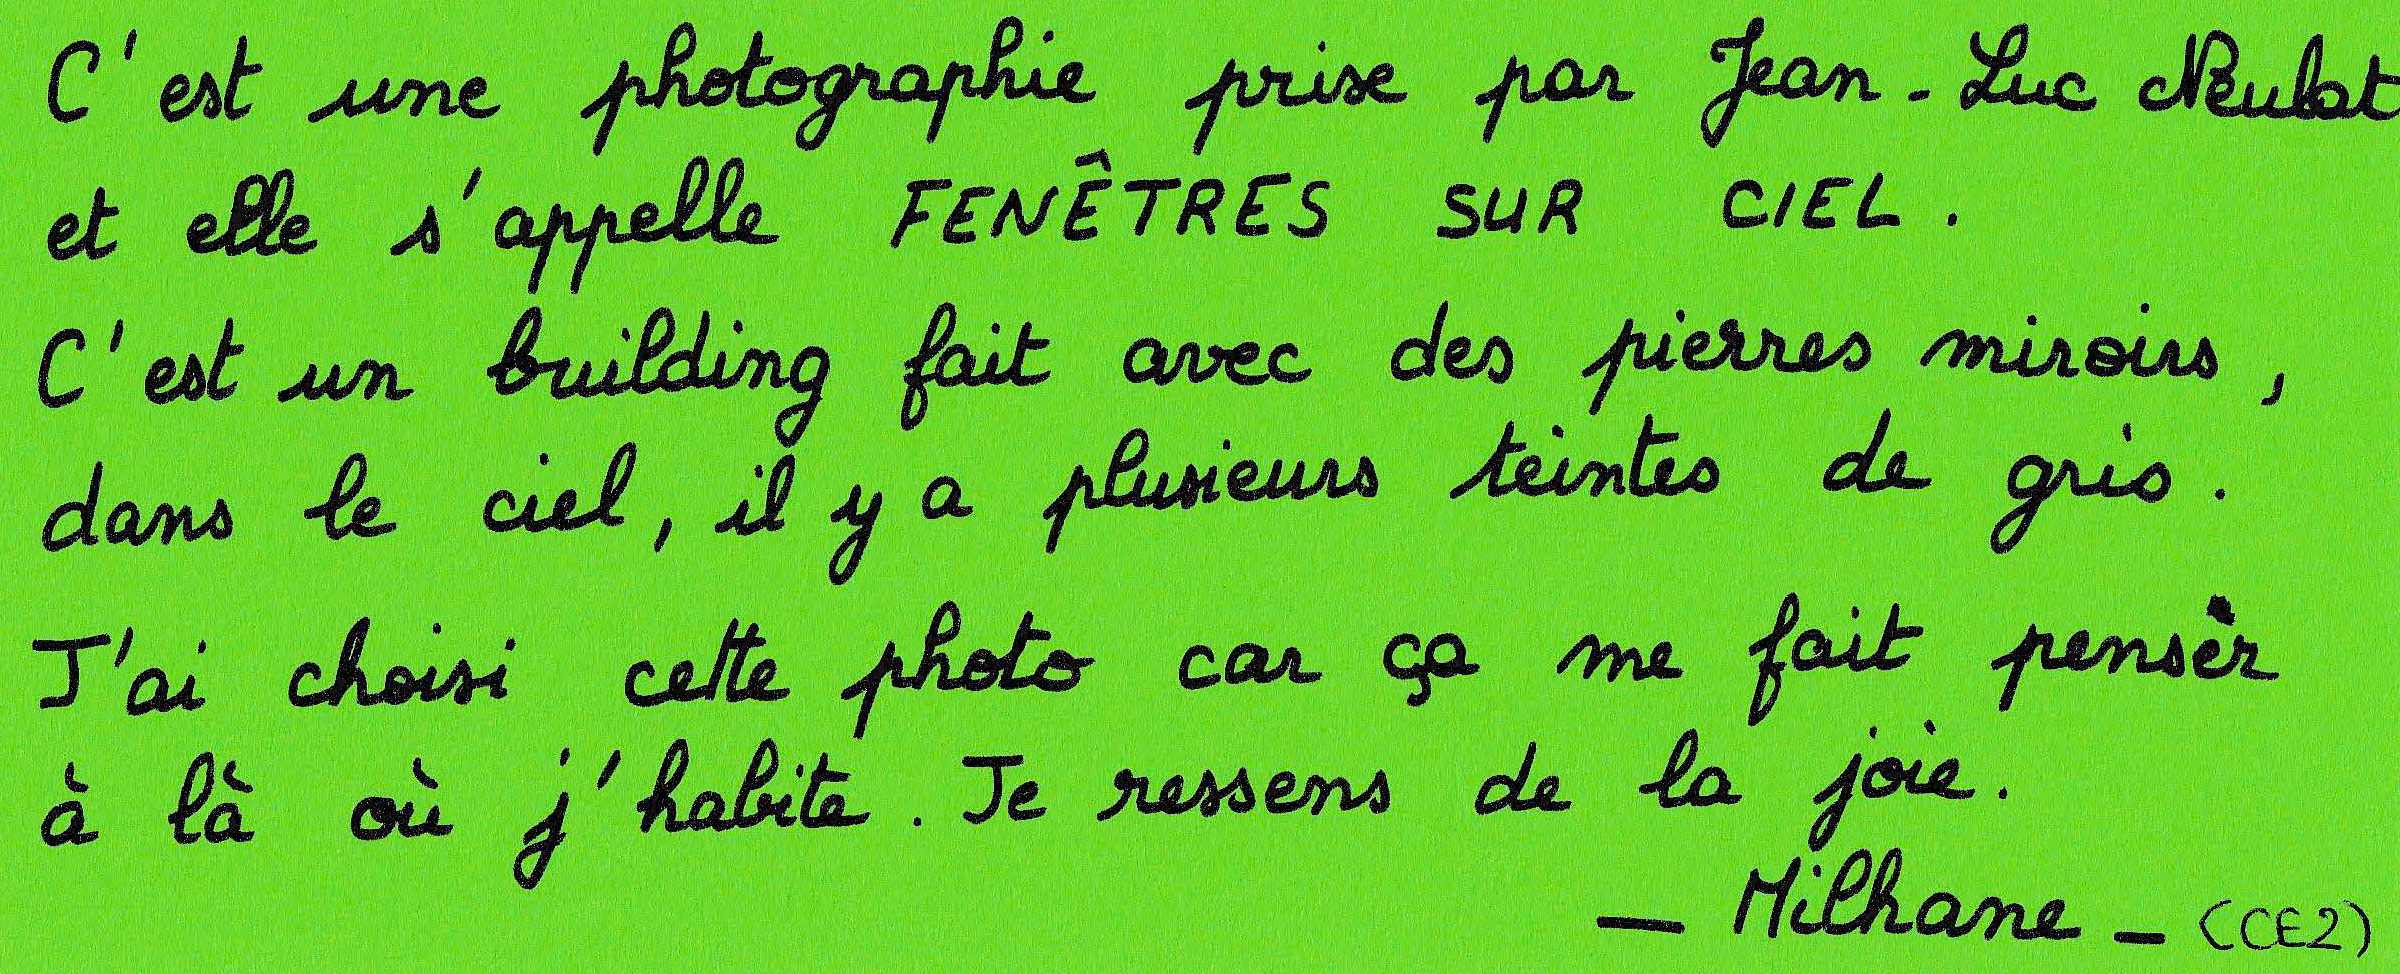 C'est une photographie prise par Jean-Luc Neulat
et elle s'appelle FENÊTRES SUR CIEL.
C'est un building fait avec des pierres miroirs,
dans le ciel, il y a plusieurs teintes de gris.
J'ai choisi cette photo car ça me fait penser
à là où j'habite. Je ressens de la joie.
— Milhane — (CE2)